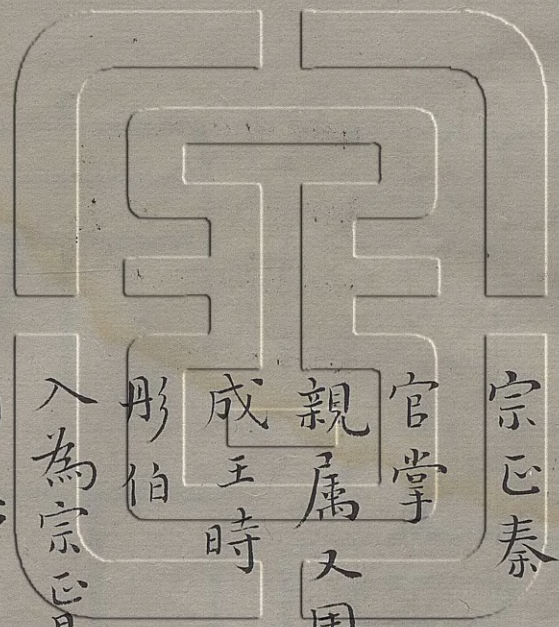 宗正秦
官掌
親属又周
成王時
彤伯
入為宗正